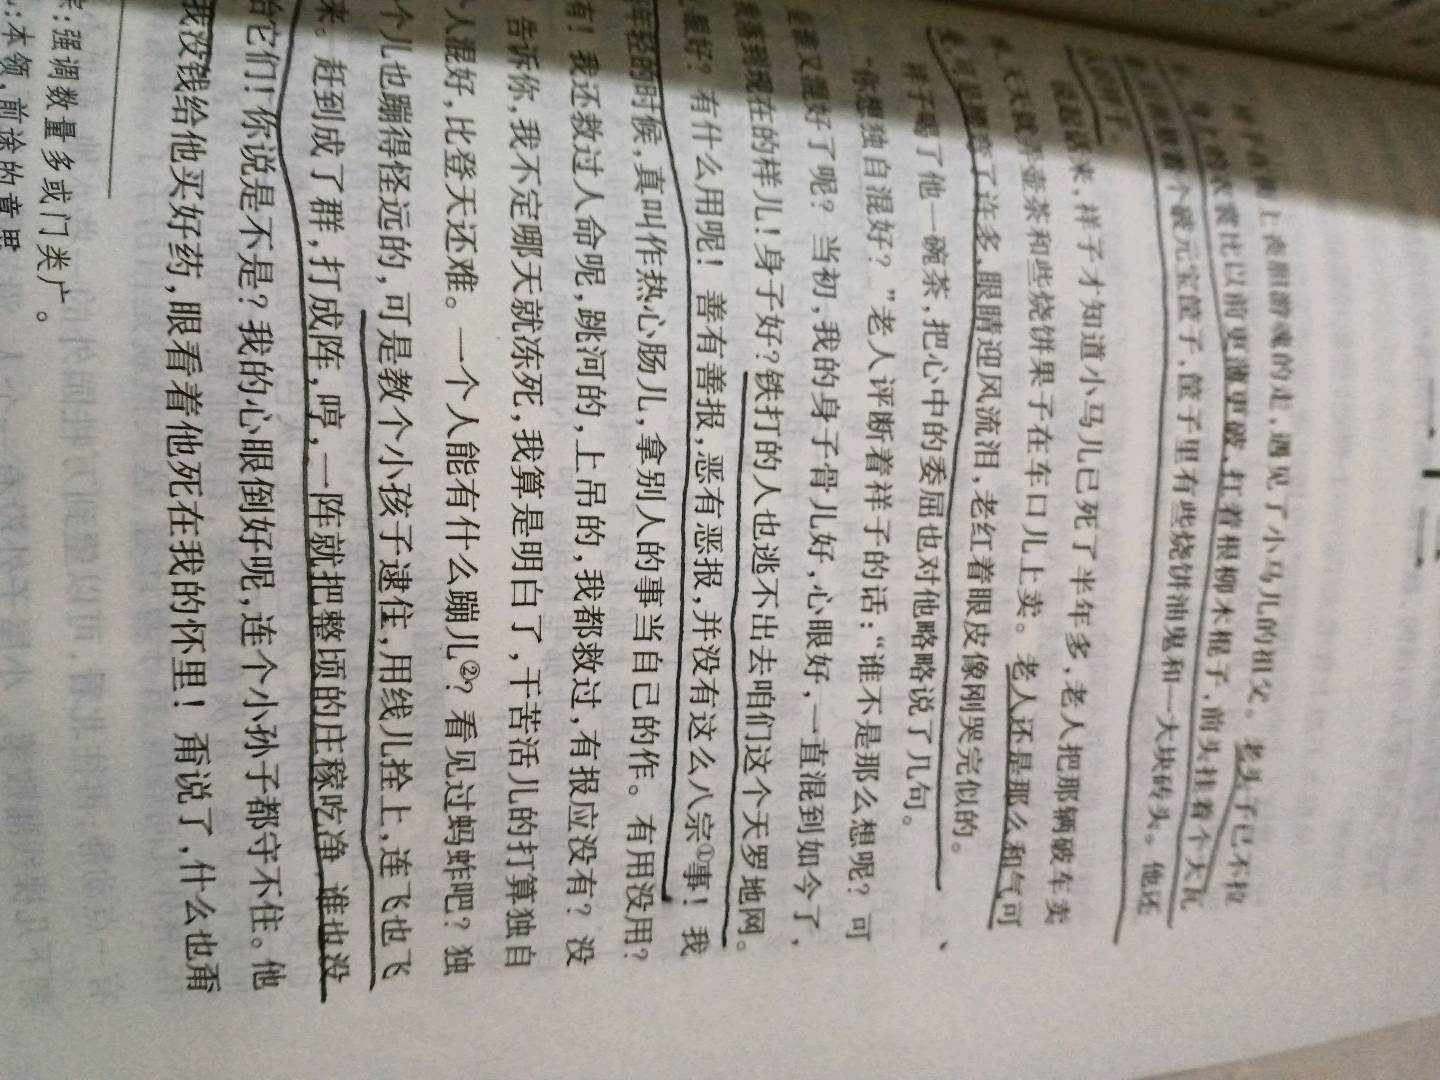 祥子在街上丧胆游魂的走，遇见了小马儿的祖父。老头子已不拉
身上的衣裳比以前更薄更破，扛着根柳木棍子，前头挂着个大瓦
后面悬着个破元宝筐子，筐子里有些烧饼油鬼和一大块砖头。他还
认识祥子。
说起话来，祥子才知道小马儿已死了半年多，老人把那辆破车卖
天天就弄壶茶和些烧饼果子在车口儿上卖。老人还是那么和气可
可是腰弯了许多，眼睛迎风流泪，老红着眼皮像刚哭完似的。
祥子喝了他一碗茶，把心中的委屈也对他略略说了几句。
“你想独自混好？”老人评断着祥子的话：“谁不是那么想呢？可
是谁又混好了呢？当初，我的身子骨儿好，心眼好，一直混到如今了，
我落到现在的样儿！身子好？铁打的人也逃不出去咱们这个天罗地网。
心眼好？有什么用呢！善有善报，恶有恶报，并没有这么八宗①事！我
年轻的时候，真叫作热心肠儿，拿别人的事当自己的作。有用没用？
有！我还救过人命呢，跳河的，上吊的，我都救过，有报应没有？没
告诉你，我不定哪天就冻死，我算是明白了，干苦活儿的打算独自
个人混好，比登天还难。一个人能有什么蹦儿②？看见过蚂蚱吧？独
个儿也蹦得怪远的，可是教个小孩子逮住，用线儿拴上，连飞也飞
来。赶到成了群，打成阵，哼，一阵就把整顷的庄稼吃净，谁也没
给它们！你说是不是？我的心眼倒好呢，连个小孙子都守不住。他
我没钱给他买好药，眼看着他死在我的怀里！甭说了，什么也甭
宗：强调数量多或门类广。
：本领，前途的意思